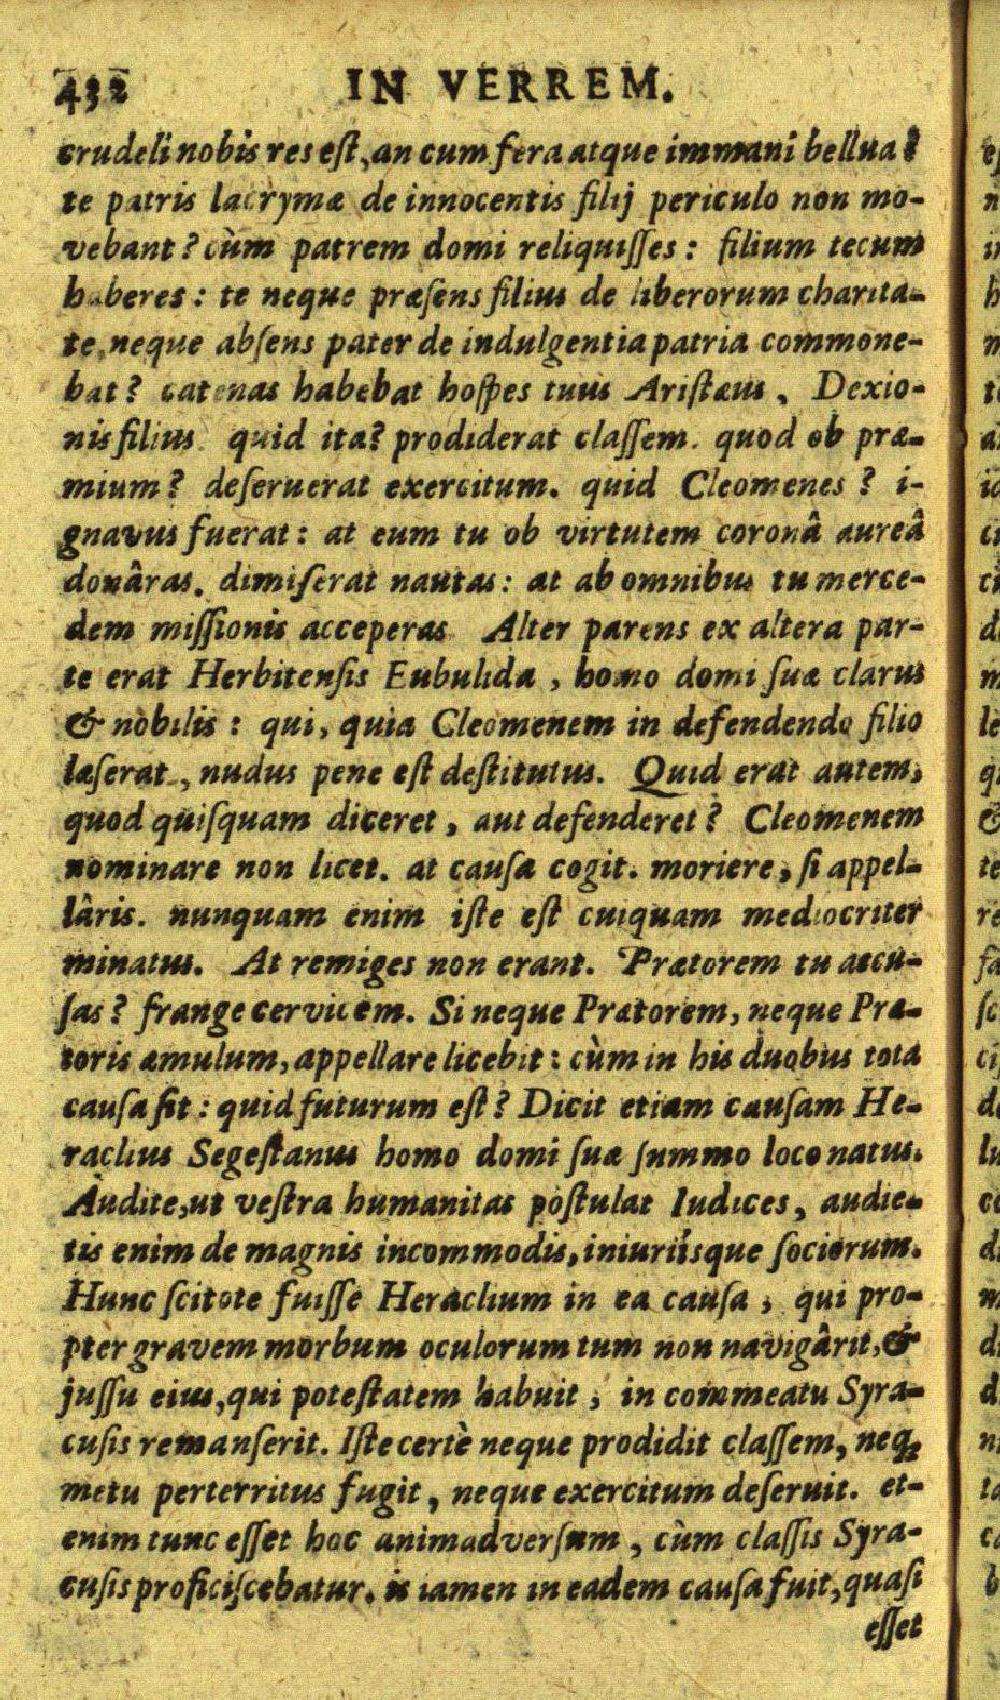 432 IN VERREM.
crudeli nobis res est, an cum fera atque immani bellua?
te patris lacrymæ de innocentis filij periculo non mo-
vebant? cùm patrem domi reliquisses: filium tecum
haberes: te neque præsens filius de liberorum charita-
te, neque absens pater de indulgentia patria commone-
bat? catenas habebat hospes tuus Aristæus, Dexio-
nis filius. quid ita? prodiderat classem. quod ob præ-
mium? deseruerat exercitum. quid Cleomenes? i-
gnavus fuerat: at eum tu ob virtutem coronâ aureâ
donâras. dimiserat nautas: at ab omnibus tu merce-
dem missionis acceperas Alter parens ex altera par-
te erat Herbitensis Eubulida, homo domi suæ clarus
& nobilis: qui, quia Cleomenem in defendendo filio
læserat, nudus pene est destitutus. Quid erat autem,
quod quisquam diceret, aut defenderet? Cleomenem
nominare non licet. at causa cogit. moriere, si appel-
lâris. nunquam enim iste est cuiquam mediocriter
minatus. At remiges non erant. Prætorem tu accu-
sas? frange cervicem. Si neque Prætorem, neque Præ-
toris æmulum, appellare licebit: cùm in his duobus tota
causa sit: quid futurum est? Dicit etiam causam He-
raclius Segestanus homo domi suæ summo loco natus.
Audite, ut vestra humanitas postulat Iudices, audie-
tis enim de magnis incommodis, iniuriisque sociorum.
Hunc scitote fuisse Heraclium in ea causa, qui pro-
pter gravem morbum oculorum tum non navigârit, &
jussu eius, qui potestatem habuit, in commeatu Syra-
cusis remanserit. Iste certè neque prodidit classem, neq;
metu perterritus fugit, neque exercitum deseruit. et-
enim tunc esset hoc animadversum, cùm classis Syra-
cusis proficiscebatur. is tamen in eadem causa fuit, quasi
esset